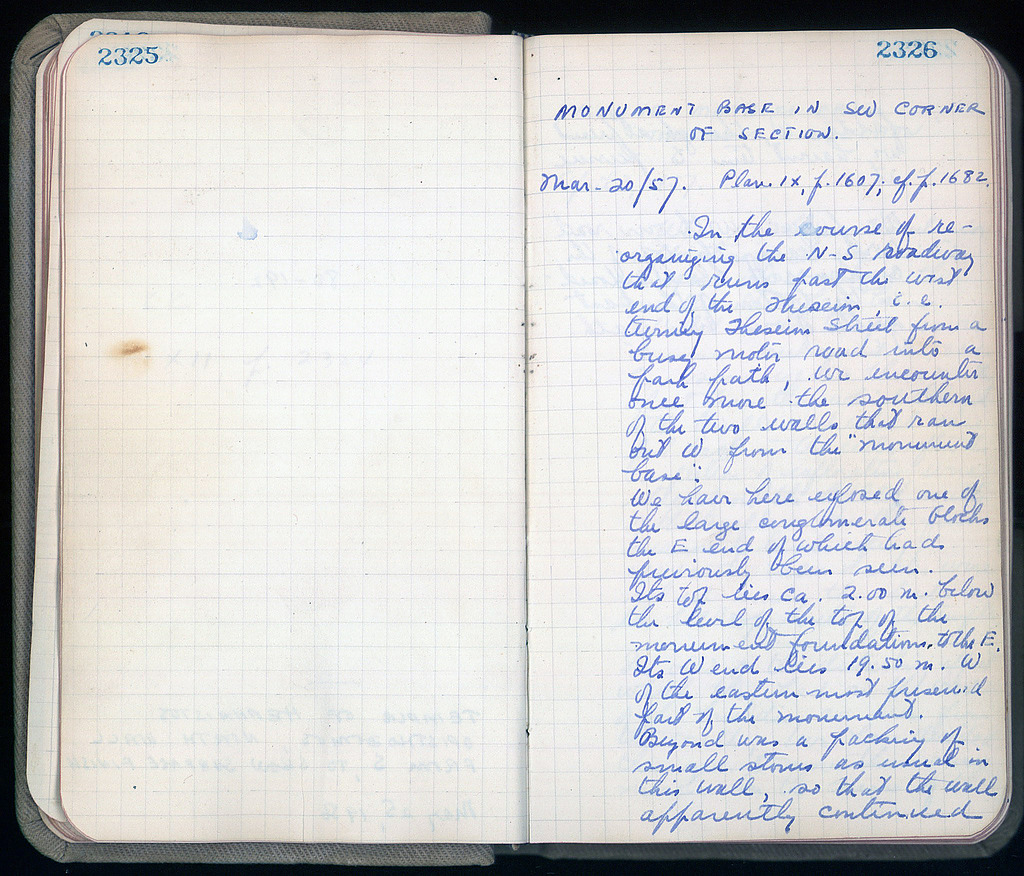 2325
2326
MONUMENT BASE IN SW CORNER
OF SECTION.
Mar-20/57. Plan IX, p. 1607; cf. p. 1682.
In the course of re-
organizing the N-S roadway
that runs past the west
end of the Theseion, i.e.
turning Theseion Street from a
busy motor road into a
park path, we encounter
once more the southern
of the two walls that ran
out W from the "monument
base".
We have here exposed one of
the large conglomerate blocks
the E end of which had
previously been seen.
Its top lies ca. 2.00 m. below
the level of the top of the
monument foundations to the E.
Its W end lies 19.50 m. W
of the easternmost preserved
part of the monument.
Beyond was a packing of
small stones as usual in
this wall, so that the wall
apparently continued